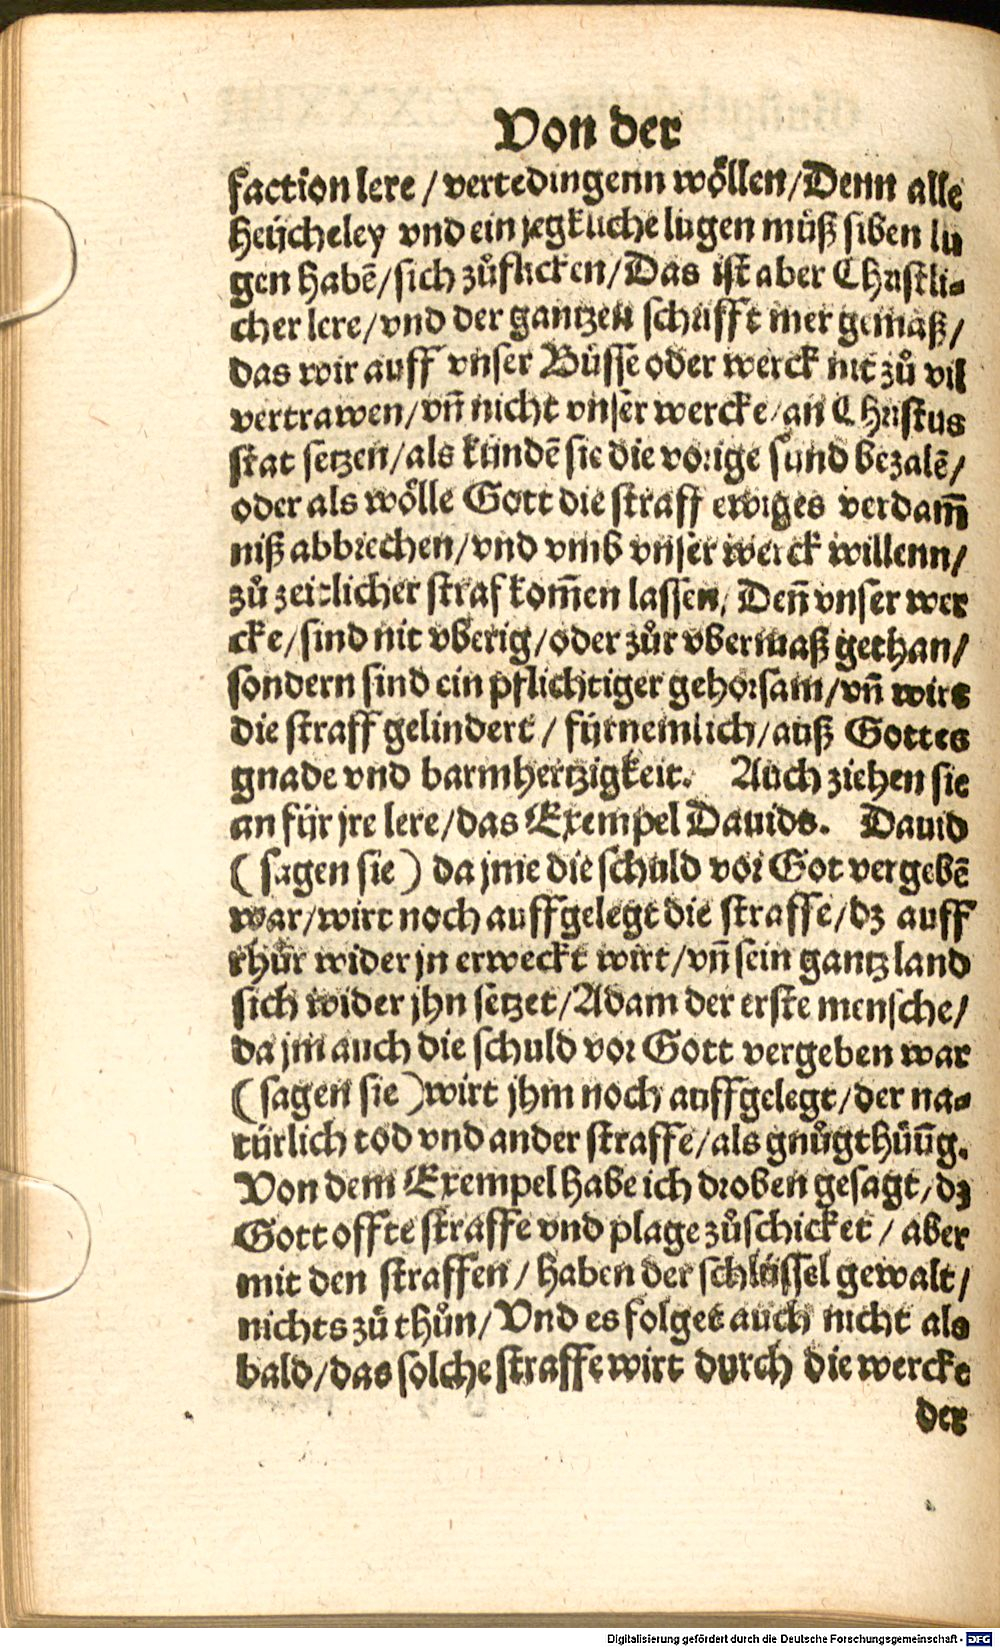 Von der
faction lere / vertedingenn wöllen/Denn alle
heijcheley vnd ein jegkliche lugen müß siben lu
gen habē/sich zůflicken/Das ist aber Christli-
cher lere/vnd der gantzen schrifft mer gemäß/
das wir auff vnser Büsse oder werck nit zů vil
vertrawen/vn̄ nicht vnser wercke/an Christus
stat setzen/als kündē sie die vorige sünd bezalē/
oder als wölle Gott die straff ewiges verdam̄
niß abbrechen/vnd vmb vnser werck willenn/
zů zeitlicher straf kom̄en lassen/Den̄ vnser wer
cke/sind nit vberig/oder zůr vbermaß gethan/
sondern sind ein pflichtiger gehorsam/vn̄ wirt
die straff gelindert / fürnemlich/auß Gottes
gnade vnd barmhertzigkeit. Auch ziehen sie
an für jre lere/das Exempel Dauids. Dauid
( sagen sie ) da jme die schuld vor Got vergebē
war/wirt noch auffgelegt die straffe/dz auff
rhůr wider jn erweckt wirt/vn̄ sein gantz land
sich wider jhn setzet/Adam der erste mensche/
da jm auch die schuld vor Gott vergeben war
( sagen sie )wirt jhm noch auffgelegt/der na-
türlich tod vnd ander straffe/als gnůgthüūg.
Von dem Exempel habe ich droben gesagt/dz
Gott offte straffe vnd plage zůschicket / aber
mit den straffen / haben der schlüssel gewalt/
nichts zů thůn/Vnd es folget auch nicht als
bald/das solche straffe wirt durch die wercke
der
Digitalisierung gefördert durch die Deutsche Forschungsgemeinschaft - DFG